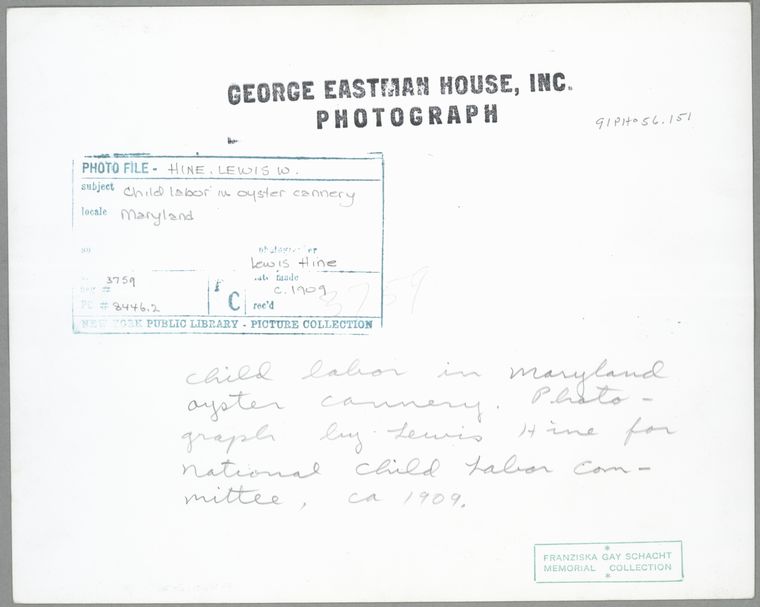 GEORGE EASTMAN HOUSE, INC.
PHOTOGRAPH
91PH056.151
PHOTO FILE - HINE, LEWIS W.
subject Child labor in oyster cannery
locale Maryland
photographer
Lewis Hine
neg # 3759
date made
c. 1909
PC # 8446.2
C
rec'd
3759
NEW YORK PUBLIC LIBRARY - PICTURE COLLECTION
Child labor in Maryland
oyster cannery. Photo-
graph by Lewis Hine for
National Child Labor Com-
mittee, ca 1909.
FRANZISKA GAY SCHACHT
MEMORIAL COLLECTION